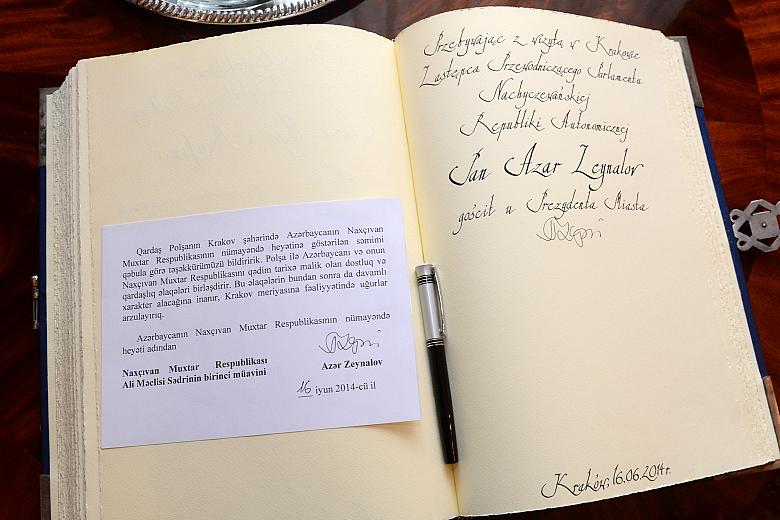 Qardaş Polşanın Krakov şəhərində Azərbaycanın Naxçıvan
Muxtar Respublikasının nümayəndə heyətinə göstərilən səmimi
qəbula görə təşəkkürümüzü bildiririk. Polşa ilə Azərbaycanı və onun
Naxçıvan Muxtar Respublikasını qədim tarixə malik olan dostluq və
qardaşlıq əlaqələri birləşdirir. Bu əlaqələrin bundan sonra da davamlı
xarakter alacağına inanır, Krakov meriyasına fəaliyyətində uğurlar
arzulayırıq.
Azərbaycanın Naxçıvan Muxtar Respublikasının nümayəndə
heyəti adından
Naxçıvan Muxtar Respublikası
Ali Məclisi Sədrinin birinci müavini
Azər Zeynalov
16 iyun 2014-cü il
Przebywając z wizytą w Krakowie
Zastępca Przewodniczącego Parlamentu
Nachyczewańskiej
Republiki Autonomicznej
Pan Azar Zeynalov
gościł u Prezydenta Miasta
Kraków, 16.06.2014 r.